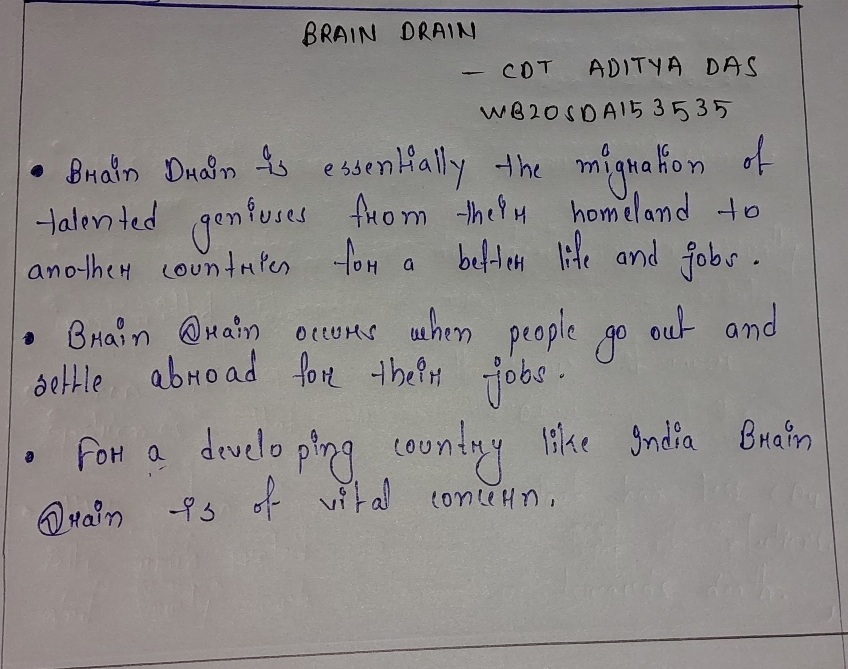 BRAIN DRAIN
- CDT ADITYA DAS
WB20SDA153535
• Brain Drain is essentially the migration of
talented geniuses from their homeland to
another countries for a better life and jobs.
• Brain Drain occurs when people go out and
settle abroad for their jobs.
• For a developing country like India Brain
Drain is of vital concern.